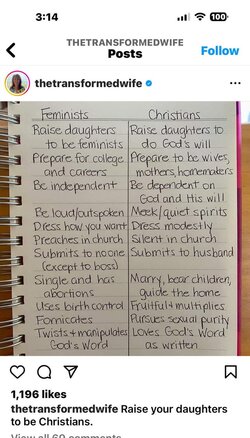 3:14
100
THETRANSFORMEDWIFE
Posts
Follow
thetransformedwife
Feminists
Christians
Raise daughters
to be feminists
Raise daughters to
do God's will
Prepare for college
and careers
Prepare to be wives,
mothers, homemakers
Be independent
Be dependent on
God and His will
Be loud/outspoken
Meek/quiet spirits
Dress how you want
Dress modestly
Preaches in church
Silent in church
Submits to no one
(except to boss)
Submits to husband
Single and has
abortions
Marry, bear children,
guide the home
Uses birth control
Fruitful + multiplies
Fornicates
Pursues sexual purity
Twists + manipulates
God's Word
Loves God's Word
as written
1,196 likes
thetransformedwife Raise your daughters
to be Christians.
View all 60 comments